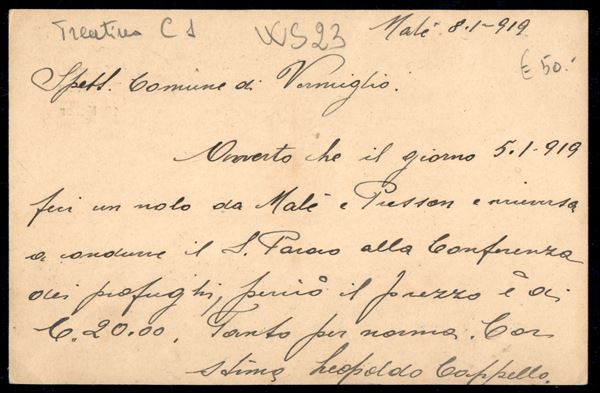 Trentino C 1 WS23 Malé 8·1-919
€ 50.-
Spett. Comune di Vermiglio.
Avverto che il giorno 5.1-919
feci un nolo da Malé e Presson e viceversa
a condurre il S. Paroco alla Conferenza
dei profughi, perciò il prezzo è di
C. 20.00. Tanto per norma. Con
stima Leopoldo Cappello.